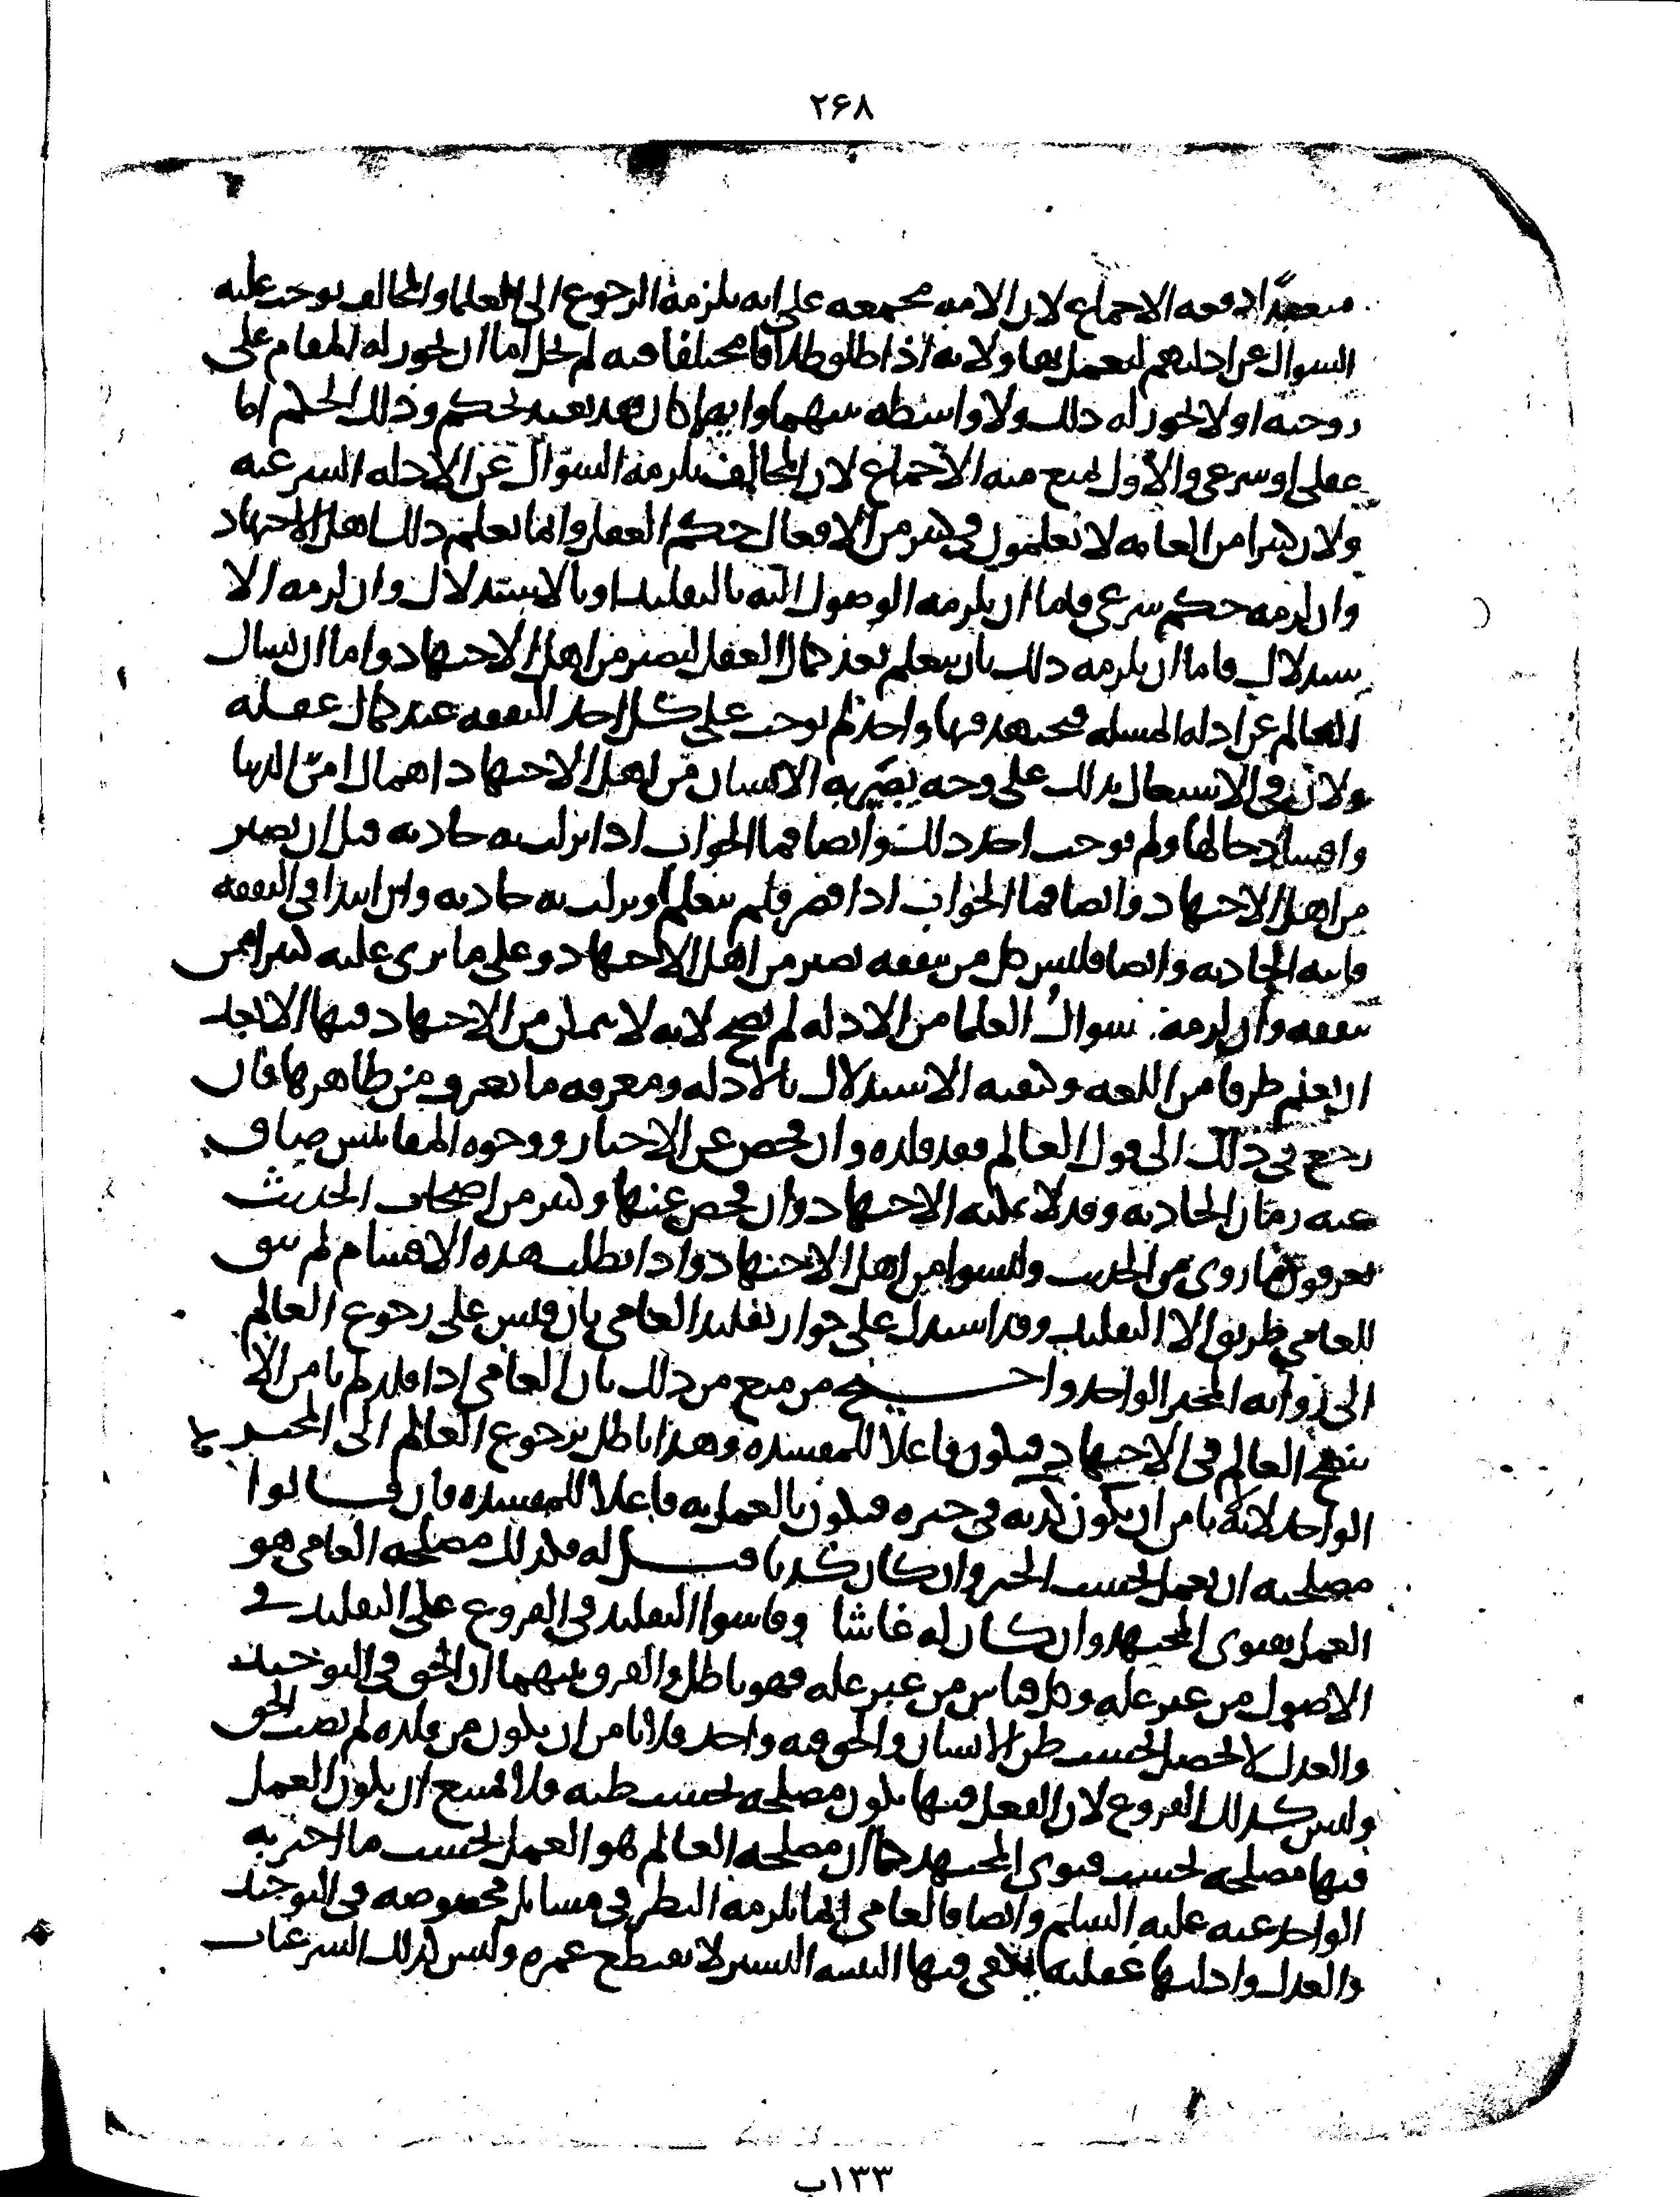 ۲۶۸
متعبدا دفعه الاجماع لان الامه مجمعه على انه يلزمه الرجوع الى العلما والمخالف يوجب عليه
السوال عن ادلتهم ليعمل بها ولانه اذا طلق طلاقا مختلفا فيه لم يخل اما ان يجوز له المقام على
زوجته او لا يجوز له ذلك ولا واسطه بينهما وايهما كان فقد تعبد بحكم وذلك الحكم اما
عقلى او شرعى والاول يمنع منه الاجماع لان المخالف يلزمه السوال عن الادله الشرعيه
ولان كثيرا من العامه لا يعلمون فى كثير من الافعال حكم العقل وانما يعلم ذلك اهل الاجتهاد
وان لزمه حكم شرعى فاما ان يلزمه الوصول اليه بالتقليد او بالاستدلال وان لزمه الا
ستدلال فاما ان يلزمه ذلك بان يتعلم بعد كمال العقل ليصير من اهل الاجتهاد واما ان يسال
العالم عن ادله المسله فيجتهد فيها واحد لم يوجب على كل احد التفقه عند كمال عقله
ولان فى الاشتغال بذلك على وجه يصير به الانسان من اهل الاجتهاد اهمال امر الدنيا
وافساد حالها ولم يوجب احد ذلك وايضا فما الجواب اذا نزلت به حادثه قبل ان يصير
من اهل الاجتهاد وايضا فما الجواب اذا قصر فلم يتعلم ونزلت به حادثه وان ابتدا فى التفقه
فاتته الحادثه وايضا فليس كل من يتفقه يصير من اهل الاجتهاد وعلى ما نرى عليه كثيرا ممن
يتفقه وان لزمه سوال العلما من الادله لم يصح لانه لا يتمكن من الاجتهاد فيها الا بعد
ان يعلم طرفا من اللغه وكيفيه الاستدلال بالادله ومعرفه ما يعرف من ظاهرها فان
رجع فى ذلك الى قول العالم فقد قلده وان فحص عن الاخبار ووجوه المقاييس ضاق
عنه زمان الحادثه وقد لا يمكنه الاجتهاد وان فحص عنها وكثير من اصحاب الحديث
يعرفون ما روى من الحديث وليسوا من اهل الاجتهاد واذا بطلت هذه الاقسام لم يبق
للعامى طريق الا التقليد وقد استدل على جواز تقليد العامى بان قيس على رجوع العالم
الى روايه المخبر الواحد واحتج من منع من ذلك بان العامى اذا قلد لم يامن الا
ينصح العالم فى الاجتهاد فيكون فاعلا للمفسده وهذا باطل برجوع العالم الى المخبر
الواحد لانه لا يامن ان يكون كذبه فى خبره فيكون بالعمل به فاعلا للمفسده فان قالوا
مصلحته ان يعمل بحسب الخبر وان كان كذبا قيل له فكذلك مصلحه العامى هو
العمل بفتوى المجتهد وان كان له غاشا وقاسوا التقليد فى الفروع على التقليد فى
الاصول من غير عله وكل قياس من غير عله فهو باطل والفرق بينهما ان الحق فى التوحيد
والعدل لا يحصل بحسب ظن الانسان والحق فيه واحد فلا نامن ان يكون من قلده لم يصب الحق
وليس كذلك الفروع لان الفعل فيها يكون مصلحه بحسب ظنه فلا يمتنع ان يكون العمل
فيها مصلحه بحسب فتوى المجتهد كما ان مصلحه العالم هو العمل بحسب ما اخبر به
الواحد عنه عليه السلم وايضا فالعامى انما يلزمه النظر فى مسايل مخصوصه فى التوحيد
والعدل وادلتها عقليه يكفى فيها التنبيه اليسير لا يقطع عمره وليس كذلك الشرعيات
۱۳۳ب